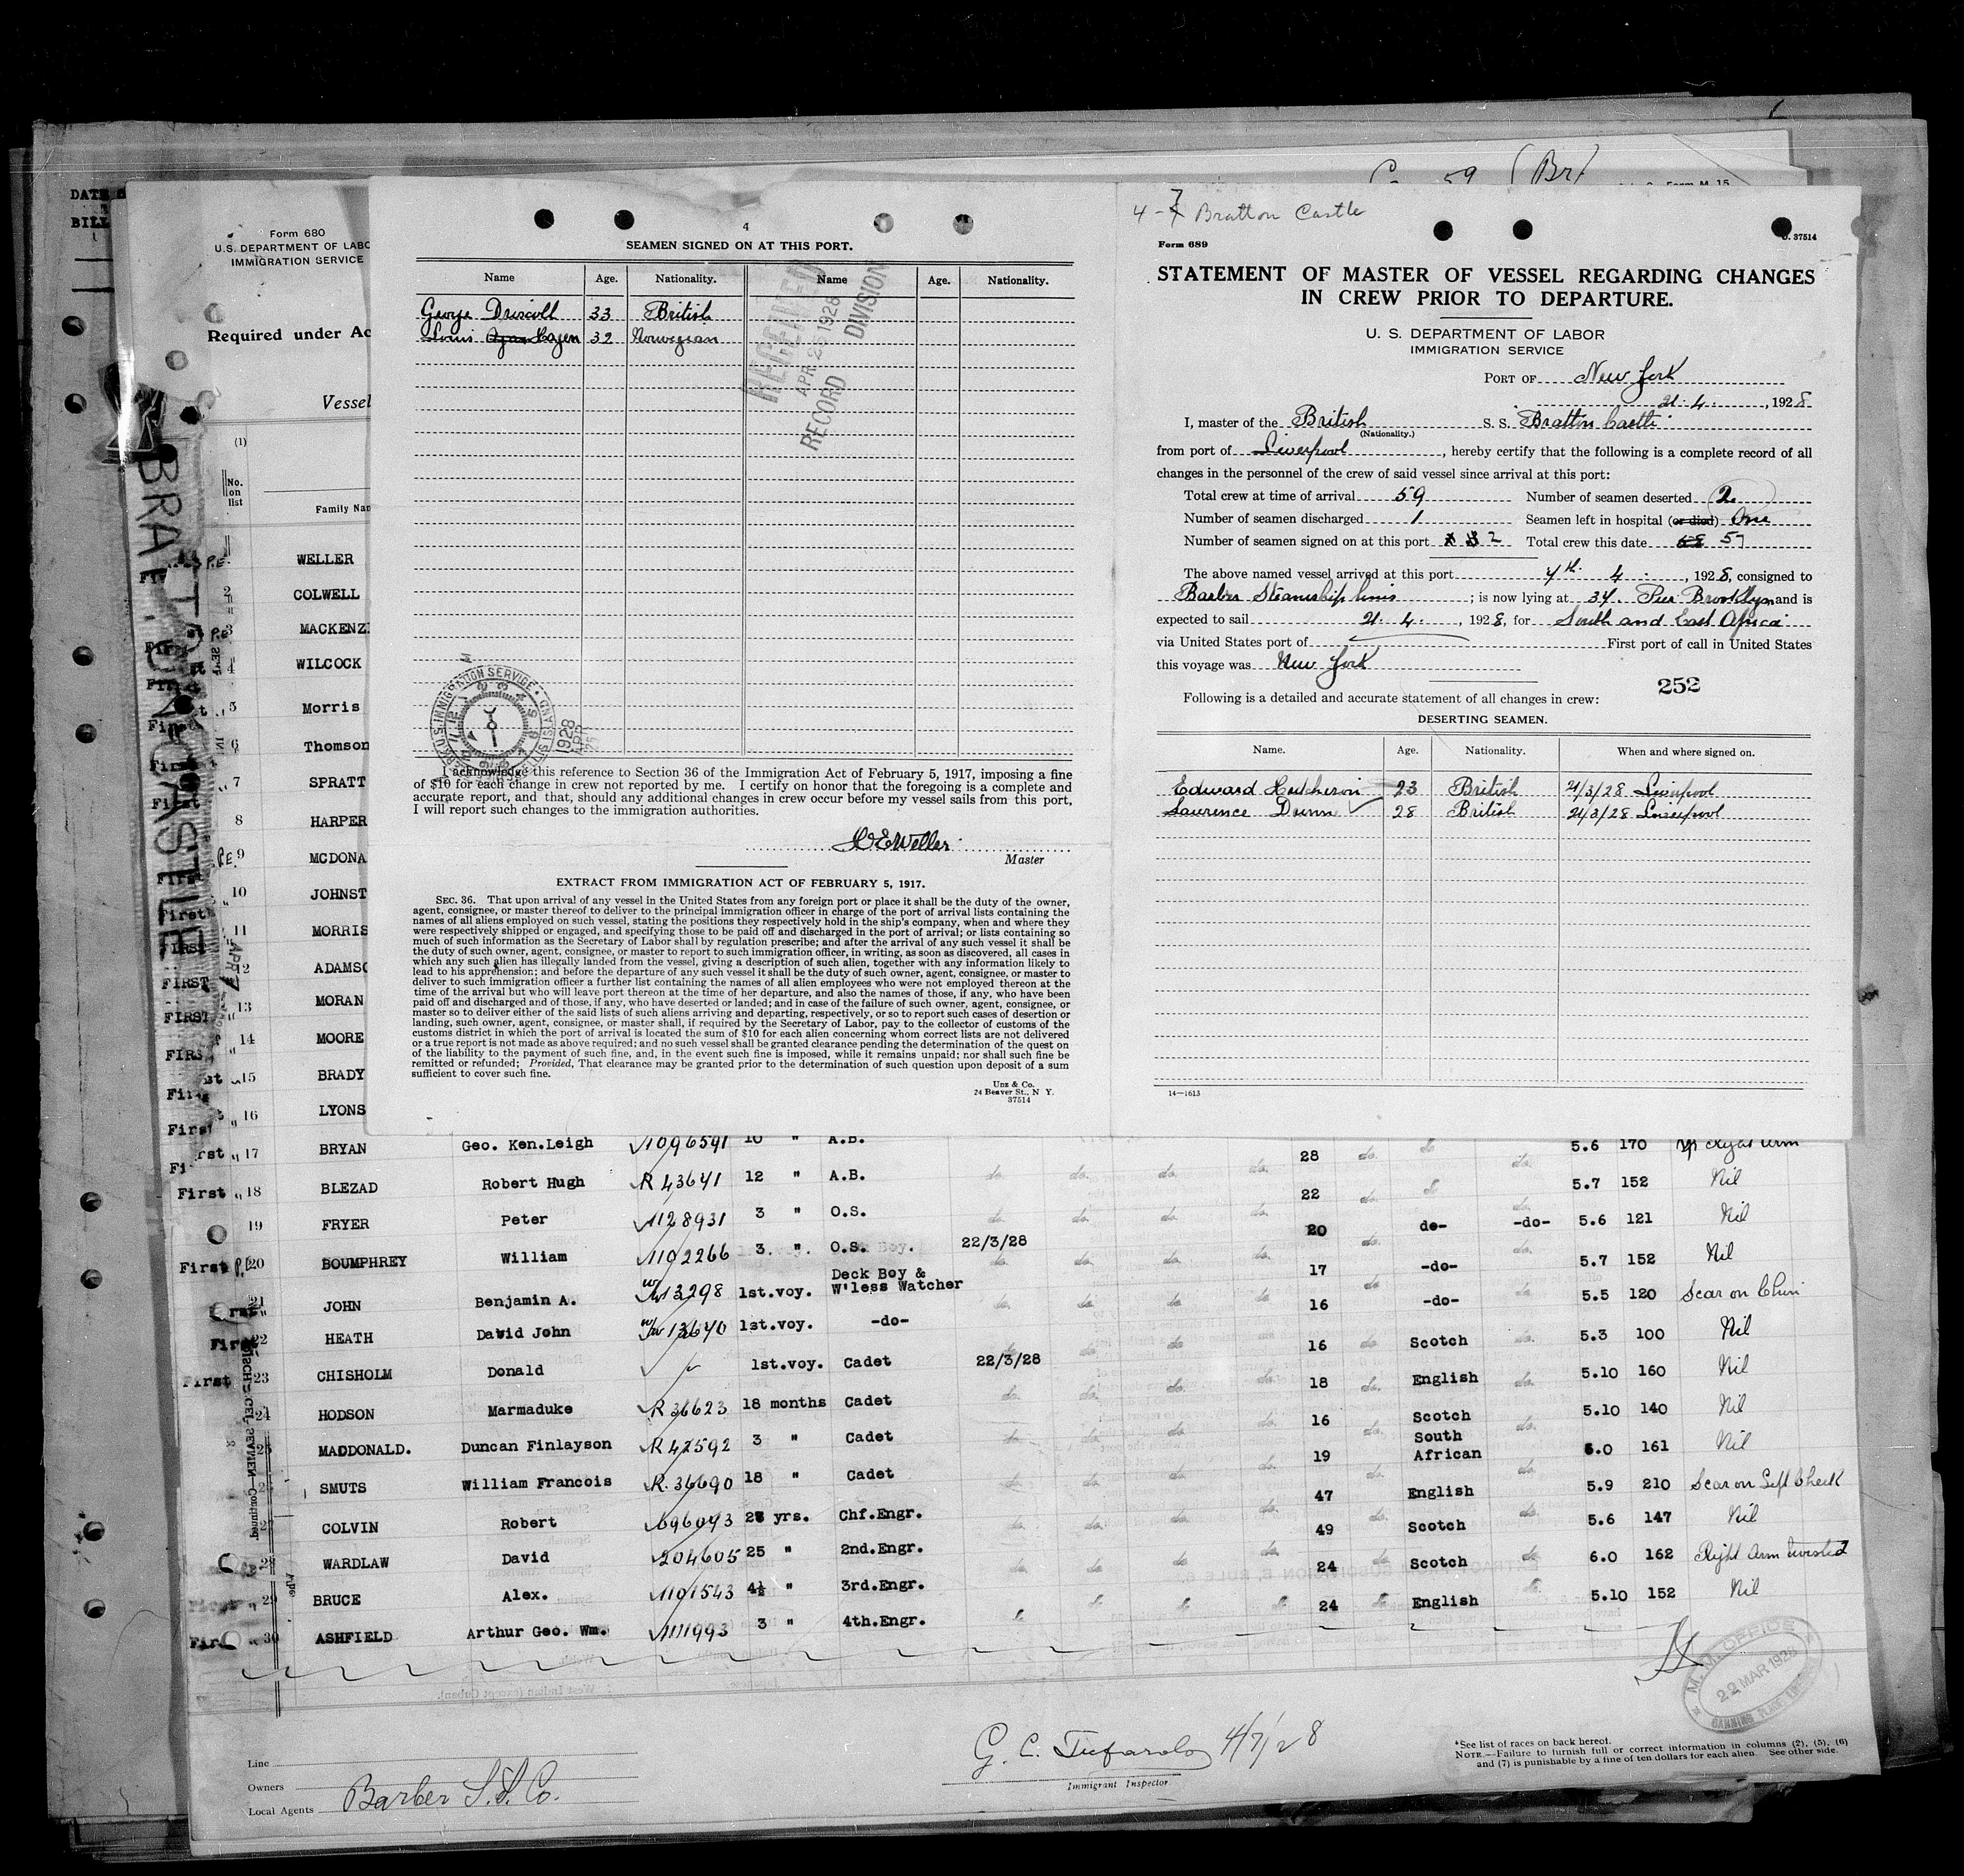 DATE
BILL
Form 680
U.S. DEPARTMENT OF LABO
IMMIGRATION SERVICE
Required under Ac
Vessel
(1)
No.
on
list
Family Nam
4
SEAMEN SIGNED ON AT THIS PORT.
Name Age. Nationality. Name Age. Nationality.
George Driscoll 33 British
Louis Hagen 32 Norwegian
RECEIVED
APR 25 1928
RECORD DIVISION
U.S. IMMIGRATION SERVICE
1928
APR
25
I acknowledge this reference to Section 36 of the Immigration Act of February 5, 1917, imposing a fine
of $10 for each change in crew not reported by me. I certify on honor that the foregoing is a complete and
accurate report, and that, should any additional changes in crew occur before my vessel sails from this port,
I will report such changes to the immigration authorities.
H E Weller
Master
EXTRACT FROM IMMIGRATION ACT OF FEBRUARY 5, 1917.
SEC. 36. That upon arrival of any vessel in the United States from any foreign port or place it shall be the duty of the owner,
agent, consignee, or master thereof to deliver to the principal immigration officer in charge of the port of arrival lists containing the
names of all aliens employed on such vessel, stating the positions they respectively hold in the ship's company, when and where they
were respectively shipped or engaged, and specifying those to be paid off and discharged in the port of arrival; or lists containing so
much of such information as the Secretary of Labor shall by regulation prescribe; and after the arrival of any such vessel it shall be
the duty of such owner, agent, consignee, or master to report to such immigration officer, in writing, as soon as discovered, all cases in
which any such alien has illegally landed from the vessel, giving a description of such alien, together with any information likely to
lead to his apprehension; and before the departure of any such vessel it shall be the duty of such owner, agent, consignee, or master to
deliver to such immigration officer a further list containing the names of all alien employees who were not employed thereon at the
time of the arrival but who will leave port thereon at the time of her departure, and also the names of those, if any, who have been
paid off and discharged and of those, if any, who have deserted or landed; and in case of the failure of such owner, agent, consignee, or
master so to deliver either of the said lists of such aliens arriving and departing, respectively, or so to report such cases of desertion or
landing, such owner, agent, consignee, or master shall, if required by the Secretary of Labor, pay to the collector of customs of the
customs district in which the port of arrival is located the sum of $10 for each alien concerning whom correct lists are not delivered
or a true report is not made as above required; and no such vessel shall be granted clearance pending the determination of the quest on
of the liability to the payment of such fine, and, in the event such fine is imposed, while it remains unpaid; nor shall such fine be
remitted or refunded; Provided, That clearance may be granted prior to the determination of such question upon deposit of a sum
sufficient to cover such fine.
Unz & Co.
24 Beaver St., N Y.
37514
59 (Br)
Form M 15
4-7 Bratton Castle
Form 689
37514
STATEMENT OF MASTER OF VESSEL REGARDING CHANGES
IN CREW PRIOR TO DEPARTURE.
U. S. DEPARTMENT OF LABOR
IMMIGRATION SERVICE
PORT OF New York
21. 4. , 1928
I, master of the British S. S. Bratton Castle
(Nationality.)
from port of Liverpool, hereby certify that the following is a complete record of all
changes in the personnel of the crew of said vessel since arrival at this port:
Total crew at time of arrival 59 Number of seamen deserted 2.
Number of seamen discharged 1 Seamen left in hospital (or died) One
Number of seamen signed on at this port 2 Total crew this date 57
The above named vessel arrived at this port 7th. 4. , 1928, consigned to
Barber Steamship Lines ; is now lying at 34. Pier Brooklyn and is
expected to sail 21. 4. , 1928, for South and East Africa
via United States port of First port of call in United States
this voyage was New York
252
Following is a detailed and accurate statement of all changes in crew:
DESERTING SEAMEN.
Name. Age. Nationality. When and where signed on.
Edward Hutcheson 23 British 21/3/28 Liverpool
Laurence Dunn 28 British 21/3/28 Liverpool
14—1613
BRATTON CASTLE
APR 7
WELLER
2 COLWELL
3 MACKENZ
4 WILCOCK
5 Morris
6 Thomson
7 SPRATT
8 HARPER
P.E. 9 MCDONA
10 JOHNST
11 MORRIS
12 ADAMSO
13 MORAN
14 MOORE
15 BRADY
16 LYONS
17 BRYAN Geo. Ken.Leigh 1096591 10 " A.B. 28 do 5.6 170 Right arm
First 18 BLEZAD Robert Hugh R 43641 12 " A.B. do. do. do. do. 22 do 5.7 152 Nil
19 FRYER Peter 1128931 3 " O.S. do. do. do. do. 20 do- -do- 5.6 121 Nil
First P.E. 20 BOUMPHREY William 1102266 3. " O.S. 22/3/28 17 -do- do 5.7 152 Nil
21 JOHN Benjamin A. 13298 1st.voy. Deck Boy & W'less Watcher 16 -do- 5.5 120 Scar on Chin
First 22 HEATH David John 13640 1st.voy. -do- 16 Scotch do. 5.3 100 Nil
First 23 CHISHOLM Donald 1st.voy. Cadet 22/3/28 18 do. English do. 5.10 160 Nil
24 HODSON Marmaduke R 36623 18 months Cadet do. do. do. do. 16 do. Scotch do. 5.10 140 Nil
25 MACDONALD. Duncan Finlayson R 42592 3 " Cadet do. do. do. do. 19 do. South African do. 6.0 161 Nil
SMUTS William Francois R. 36690 18 " Cadet do. do. do. do. 47 do. English do. 5.9 210 Scar on Left Cheek
COLVIN Robert 696093 28 yrs. Chf.Engr. do. do. do. do. 49 do. Scotch do. 5.6 147 Nil
28 WARDLAW David 204605 25 " 2nd.Engr. do. do. do. do. 24 do. Scotch do 6.0 162 Right Arm twisted
29 BRUCE Alex. 1101543 4½ " 3rd.Engr. 24 do. English do. 5.10 152 Nil
30 ASHFIELD Arthur Geo. Wm. 1111993 3 " 4th.Engr.
M. M. OFFICE
22 MAR 1928
Line
Owners
Local Agents Barber S.S. Co.
G. C. Tufarolo 4/7/28
Immigrant Inspector
*See list of races on back hereof.
NOTE.—Failure to furnish full or correct information in columns (2), (5), (6)
and (7) is punishable by a fine of ten dollars for each alien. See other side.